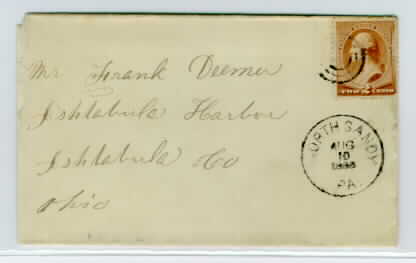 Mr Frank Deemer
Ashtabula Harbor
Ashtabula Co
Ohio
TWO 2 CENTS
NORTH SANDY
AUG
10
PA.